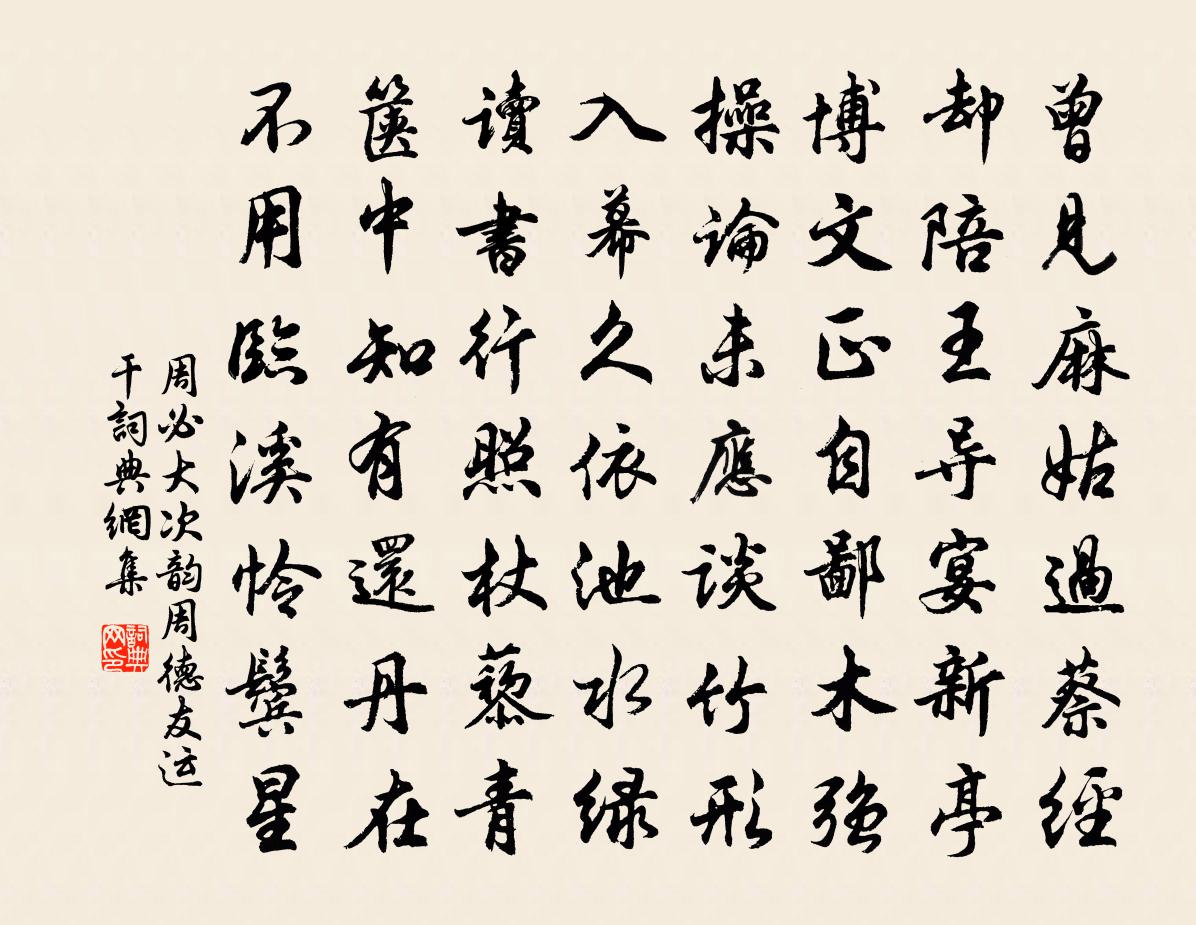 曾見麻姑過蔡經
却陪王导宴新亭
博文正自鄙木强
操論未應談竹形
入幕久依池水緑
讀書行照杖藜青
篋中知有還丹在
不用臨溪怜鬓星
周必大次韵周德友运
干詞典網集
詞典网印